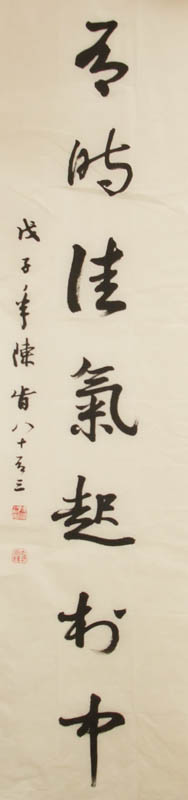 有時佳氣起村中
戊子年陳肯八十有三